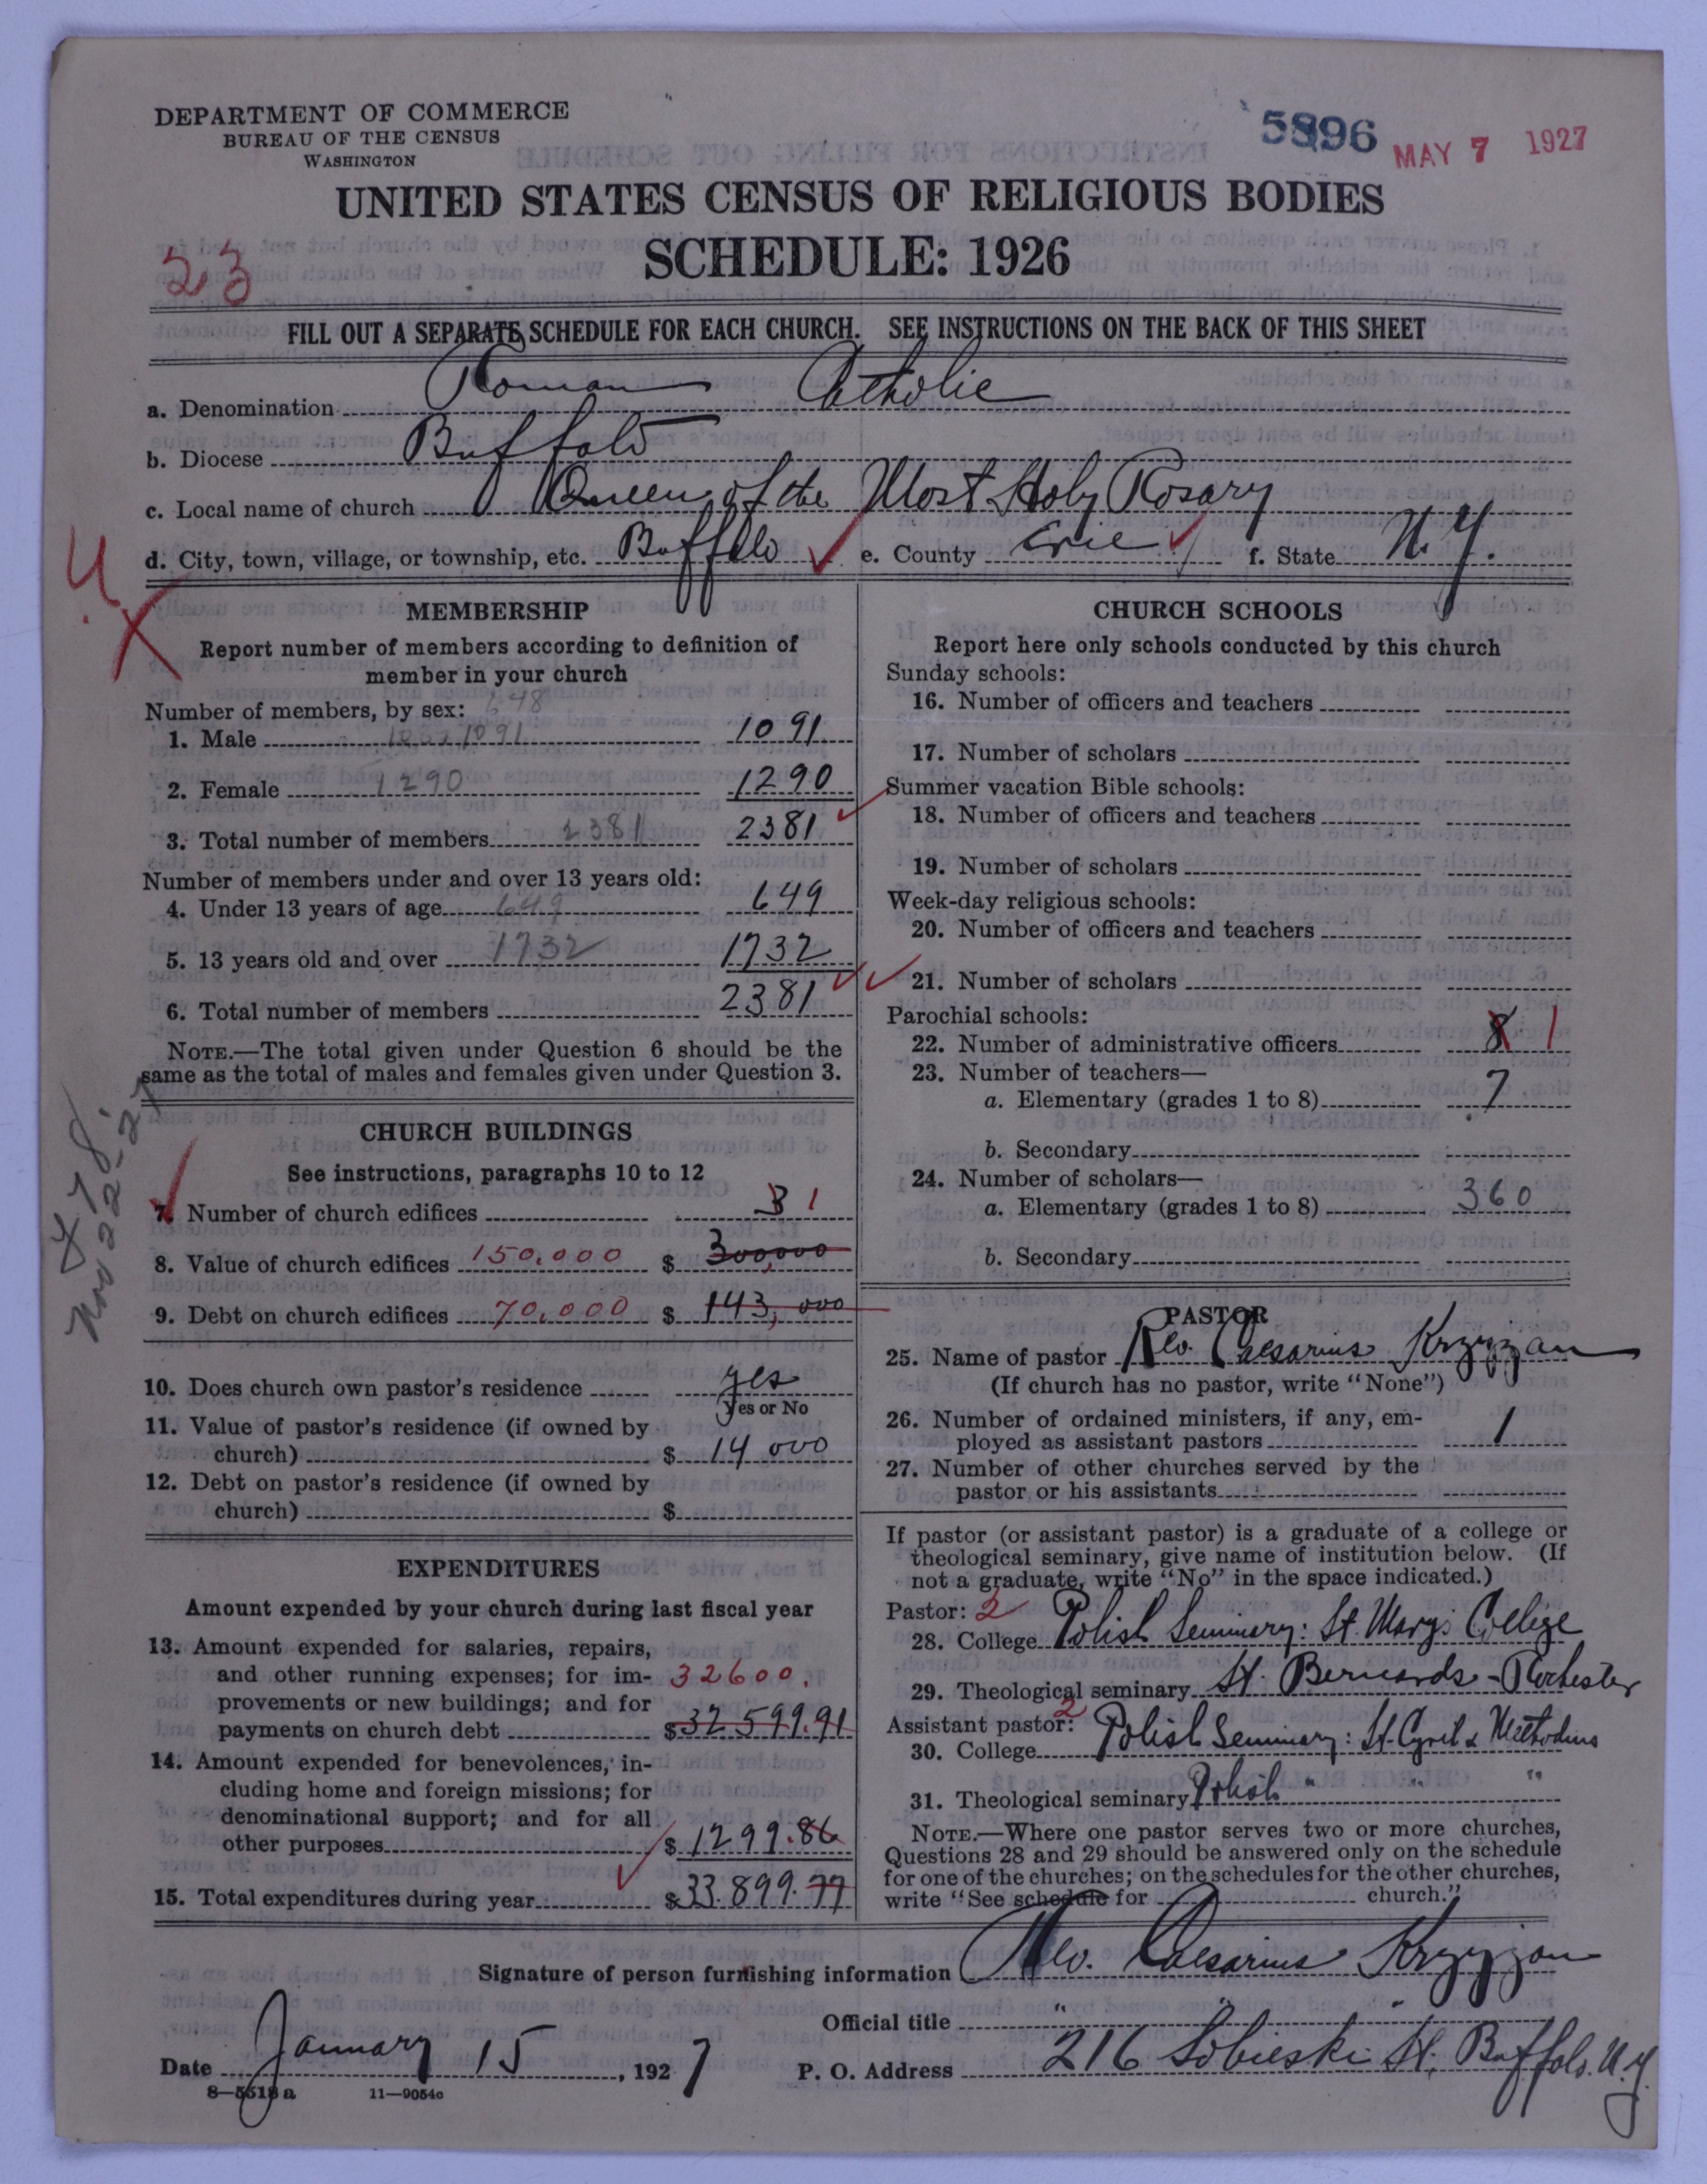 DEPARTMENT OF COMMERCE
BUREAU OF THE CENSUS
WASHINGTON
5896 MAY 7 1927
UNITED STATES CENSUS OF RELIGIOUS BODIES
SCHEDULE: 1926
23
FILL OUT A SEPARATE SCHEDULE FOR EACH CHURCH. SEE INSTRUCTIONS ON THE BACK OF THIS SHEET
a. Denomination Roman Catholic
b. Diocese Buffalo
c. Local name of church Queen of the Most Holy Rosary
d. City, town, village, or township, etc. Buffalo e. County Erie f. State N.Y.
MEMBERSHIP
Report number of members according to definition of
member in your church
Number of members, by sex: 648
1. Male 1091 1091
2. Female 1290 1290
3. Total number of members 2381 2381
Number of members under and over 13 years old:
4. Under 13 years of age 649 649
5. 13 years old and over 1732 1732
6. Total number of members 2381
NOTE.—The total given under Question 6 should be the
same as the total of males and females given under Question 3.
Nov 22-27
CHURCH BUILDINGS
See instructions, paragraphs 10 to 12
7. Number of church edifices 3 1
8. Value of church edifices 150,000 $ 300,000
9. Debt on church edifices 70,000 $ 143,000
10. Does church own pastor's residence yes
Yes or No
11. Value of pastor's residence (if owned by
church) $ 14 000
12. Debt on pastor's residence (if owned by
church) $
EXPENDITURES
Amount expended by your church during last fiscal year
13. Amount expended for salaries, repairs,
and other running expenses; for im- 32600.
provements or new buildings; and for
payments on church debt $ 32 599.91
14. Amount expended for benevolences, in-
cluding home and foreign missions; for
denominational support; and for all
other purposes $ 1299.86
15. Total expenditures during year $ 33.899.77
CHURCH SCHOOLS
Report here only schools conducted by this church
Sunday schools:
16. Number of officers and teachers
17. Number of scholars
Summer vacation Bible schools:
18. Number of officers and teachers
19. Number of scholars
Week-day religious schools:
20. Number of officers and teachers
21. Number of scholars
Parochial schools:
22. Number of administrative officers 8 1
23. Number of teachers—
a. Elementary (grades 1 to 8) 7
b. Secondary
24. Number of scholars—
a. Elementary (grades 1 to 8) 360
b. Secondary
PASTOR
25. Name of pastor Rev. Caesarius Krzyzan
(If church has no pastor, write "None")
26. Number of ordained ministers, if any, em-
ployed as assistant pastors 1
27. Number of other churches served by the
pastor or his assistants
If pastor (or assistant pastor) is a graduate of a college or
theological seminary, give name of institution below. (If
not a graduate, write "No" in the space indicated.)
Pastor: 2
28. College Polish Seminary: St. Mary's College
29. Theological seminary St. Bernards - Rochester
Assistant pastor: 2
30. College Polish Seminary: St. Cyril & Methodius
31. Theological seminary Polish " " "
NOTE.—Where one pastor serves two or more churches,
Questions 28 and 29 should be answered only on the schedule
for one of the churches; on the schedules for the other churches,
write "See schedule for church."
Signature of person furnishing information Rev. Caesarius Krzyzan
Official title " " "
Date January 15, 1927 P. O. Address 216 Sobieski St. Buffalo. N.Y.
8—5518 a 11—9054c